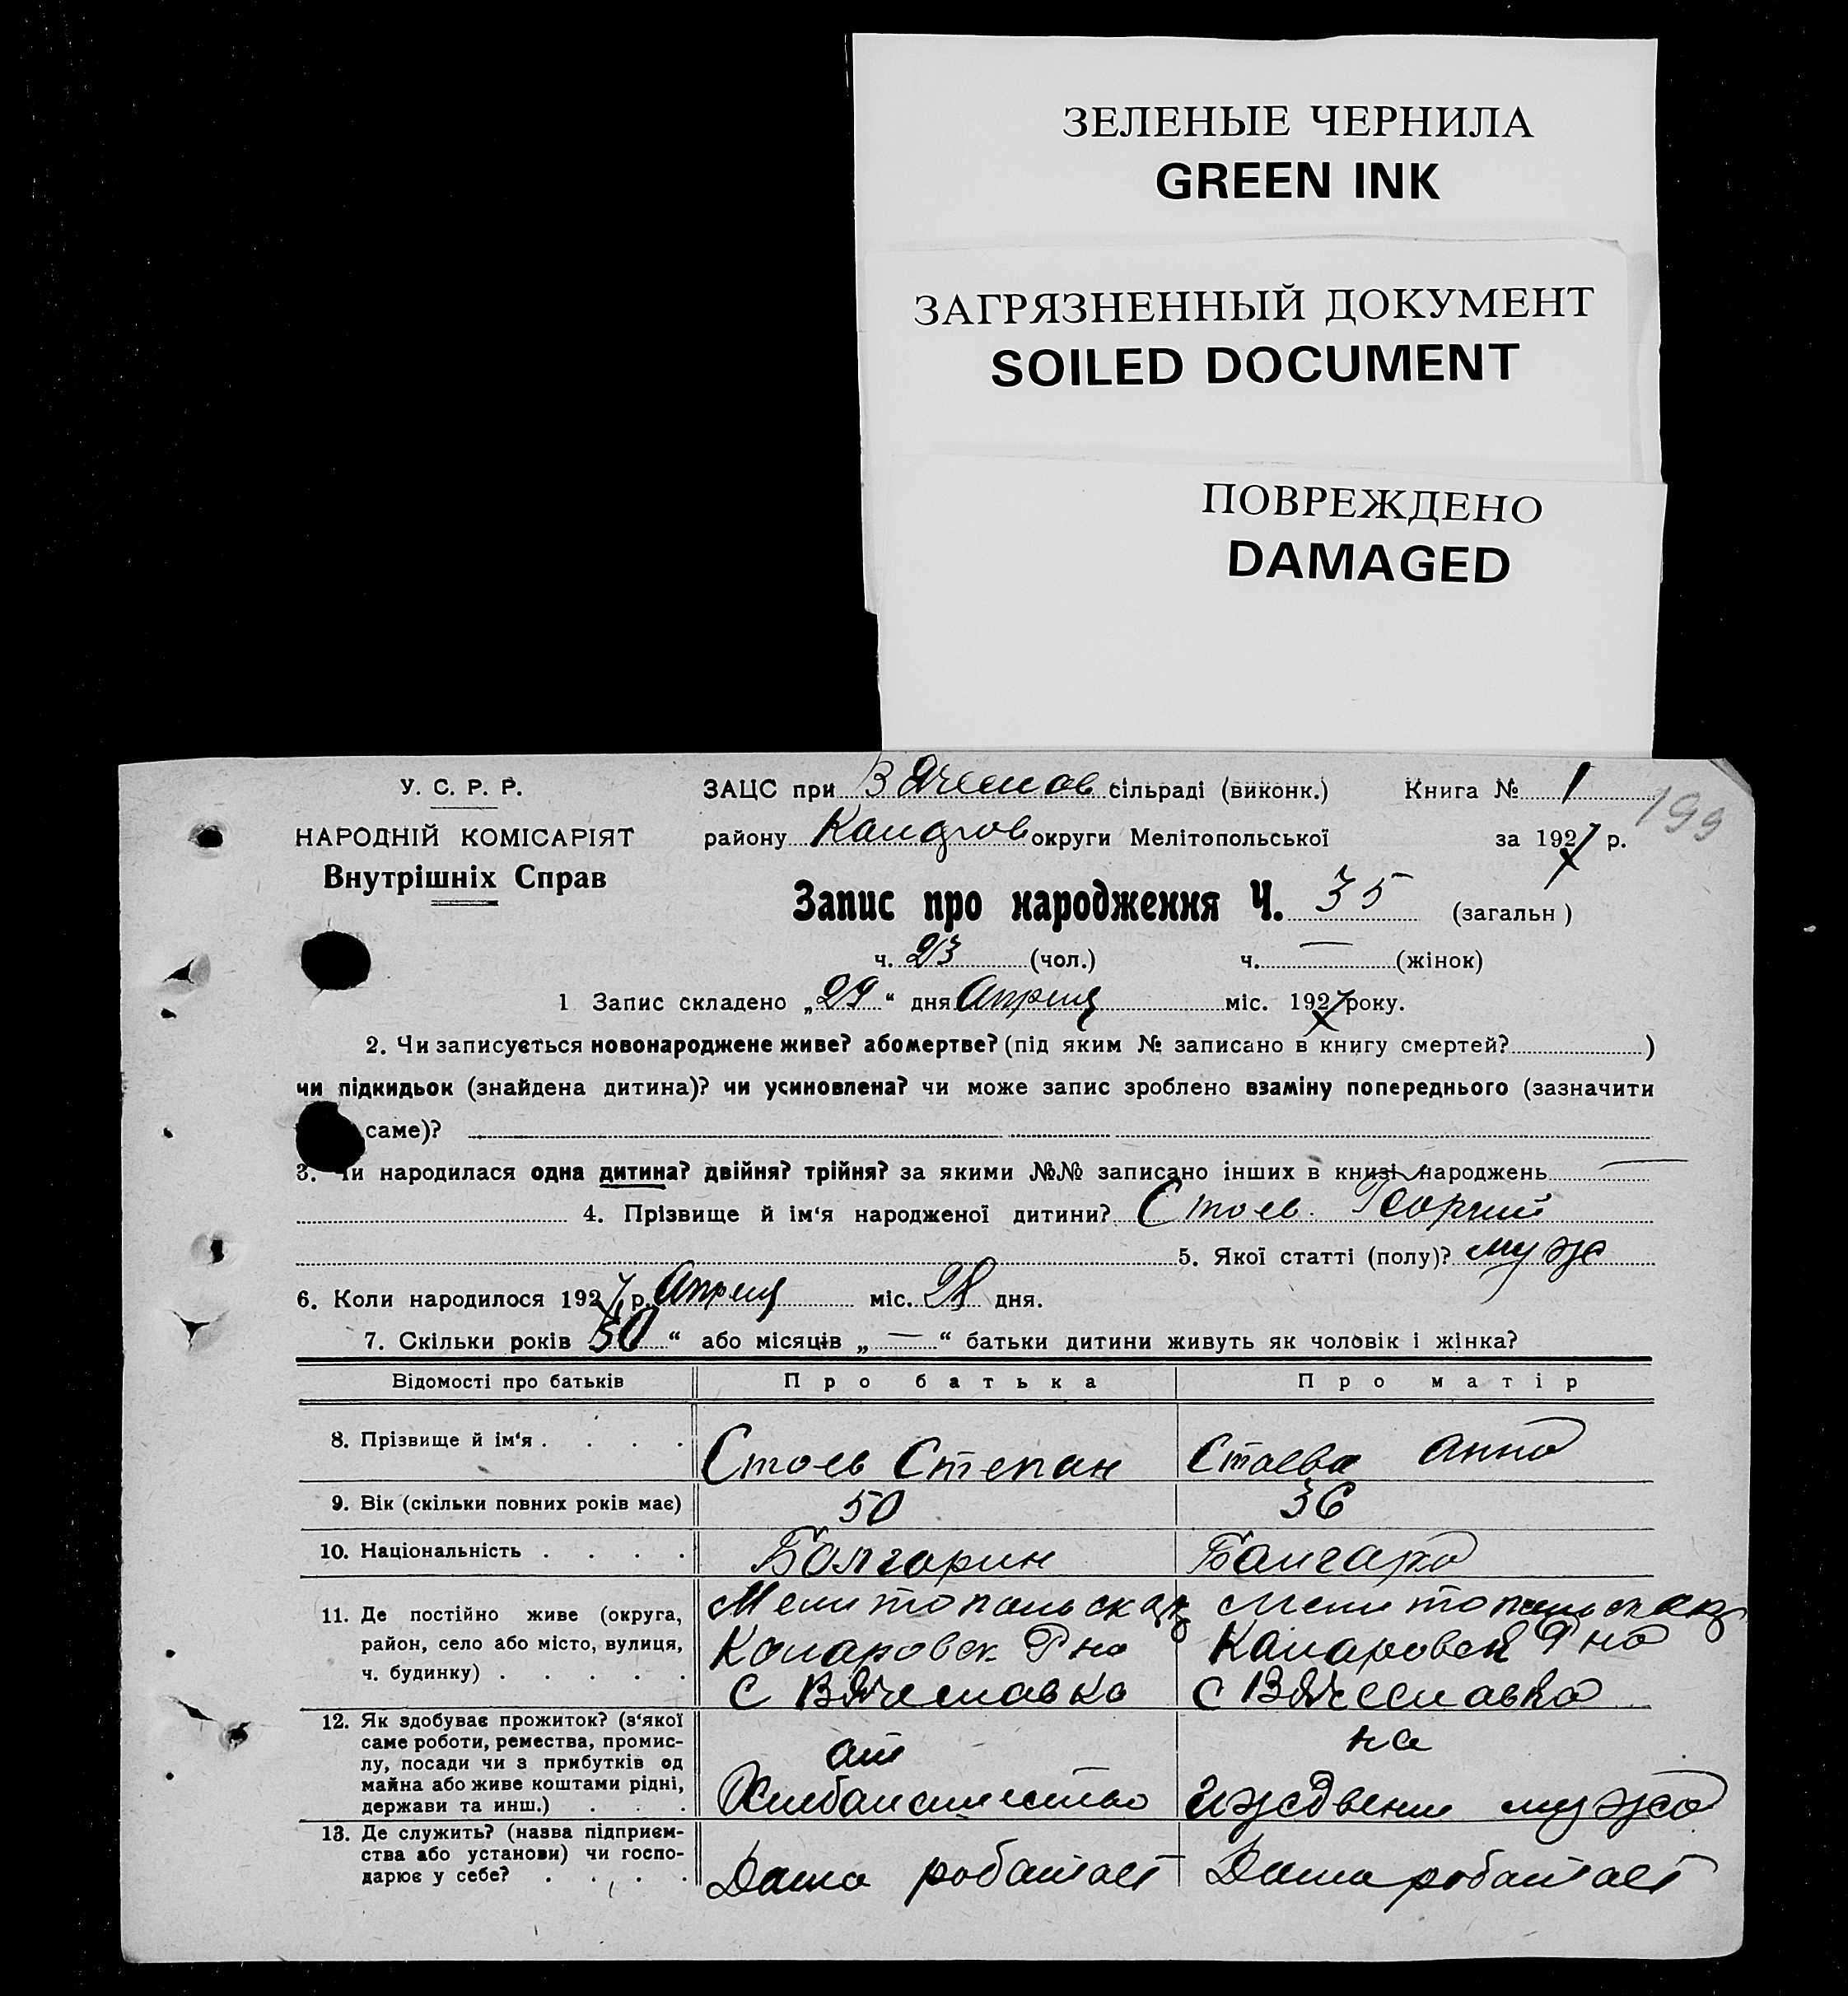 ЗЕЛЕНЫЕ ЧЕРНИЛА
GREEN INK
ЗАГРЯЗНЕННЫЙ ДОКУМЕНТ
SOILED DOCUMENT
ПОВРЕЖДЕНО
DAMAGED
У. С. Р. Р.
НАРОДНІЙ КОМІСАРІЯТ
Внутрішніх Справ
ЗАЦС при В Ячеслов сільраді (виконк.) Книга № 1
199
району округи Мелітопольської за 1927 р.
Запис про народження Ч. 35 (загальн)
ч. 23 (чол.) ч. — (жінок)
1 Запис складено „29“ дня Апреля міс. 1927 року.
2. Чи записується новонароджене живе? або мертве? (під яким № записано в книгу смертей? )
чи підкидьок (знайдена дитина)? чи усиновлена? чи може запис зроблено взаміну попереднього (зазначити
саме)?
3. Чи народилася одна дитина? двійня? трійня? за якими №№ записано інших в книзі народжень —
4. Прізвище й ім‘я народженої дитини? Стоев Георгий
5. Якої статті (полу)? муж
6. Коли народилося 1927 р. Апреля міс. 28 дня.
7. Скільки років 50 “ або місяців „ — “ батьки дитини живуть як чоловік і жінка?
Відомості про батьків Про батька Про матір
8. Прізвище й ім‘я . . . . Стоев Степан Стоева Анна
9. Вік (скільки повних років має) 50 36
10. Національність . . . . Болгарин Балгарка
11. Де постійно живе (округа, Мелитопальская Мелитопальская
район, село або місто, вулиця, Коларовск Р на Каларовск Р на
ч. будинку) . . . . . С ВЯчеславка С ВЯчеславка
12. Як здобуває прожиток? (з‘якої
саме роботи, ремества, промис-
лу, посади чи з прибутків од от на
майна або живе коштами рідні,
держави та инш.) . . . Хлебапашество иждвени мужа
13. Де служить? (назва підприєм-
ства або установи) чи госпо-
дарює у себе? . . . . Дама работает Дама работает